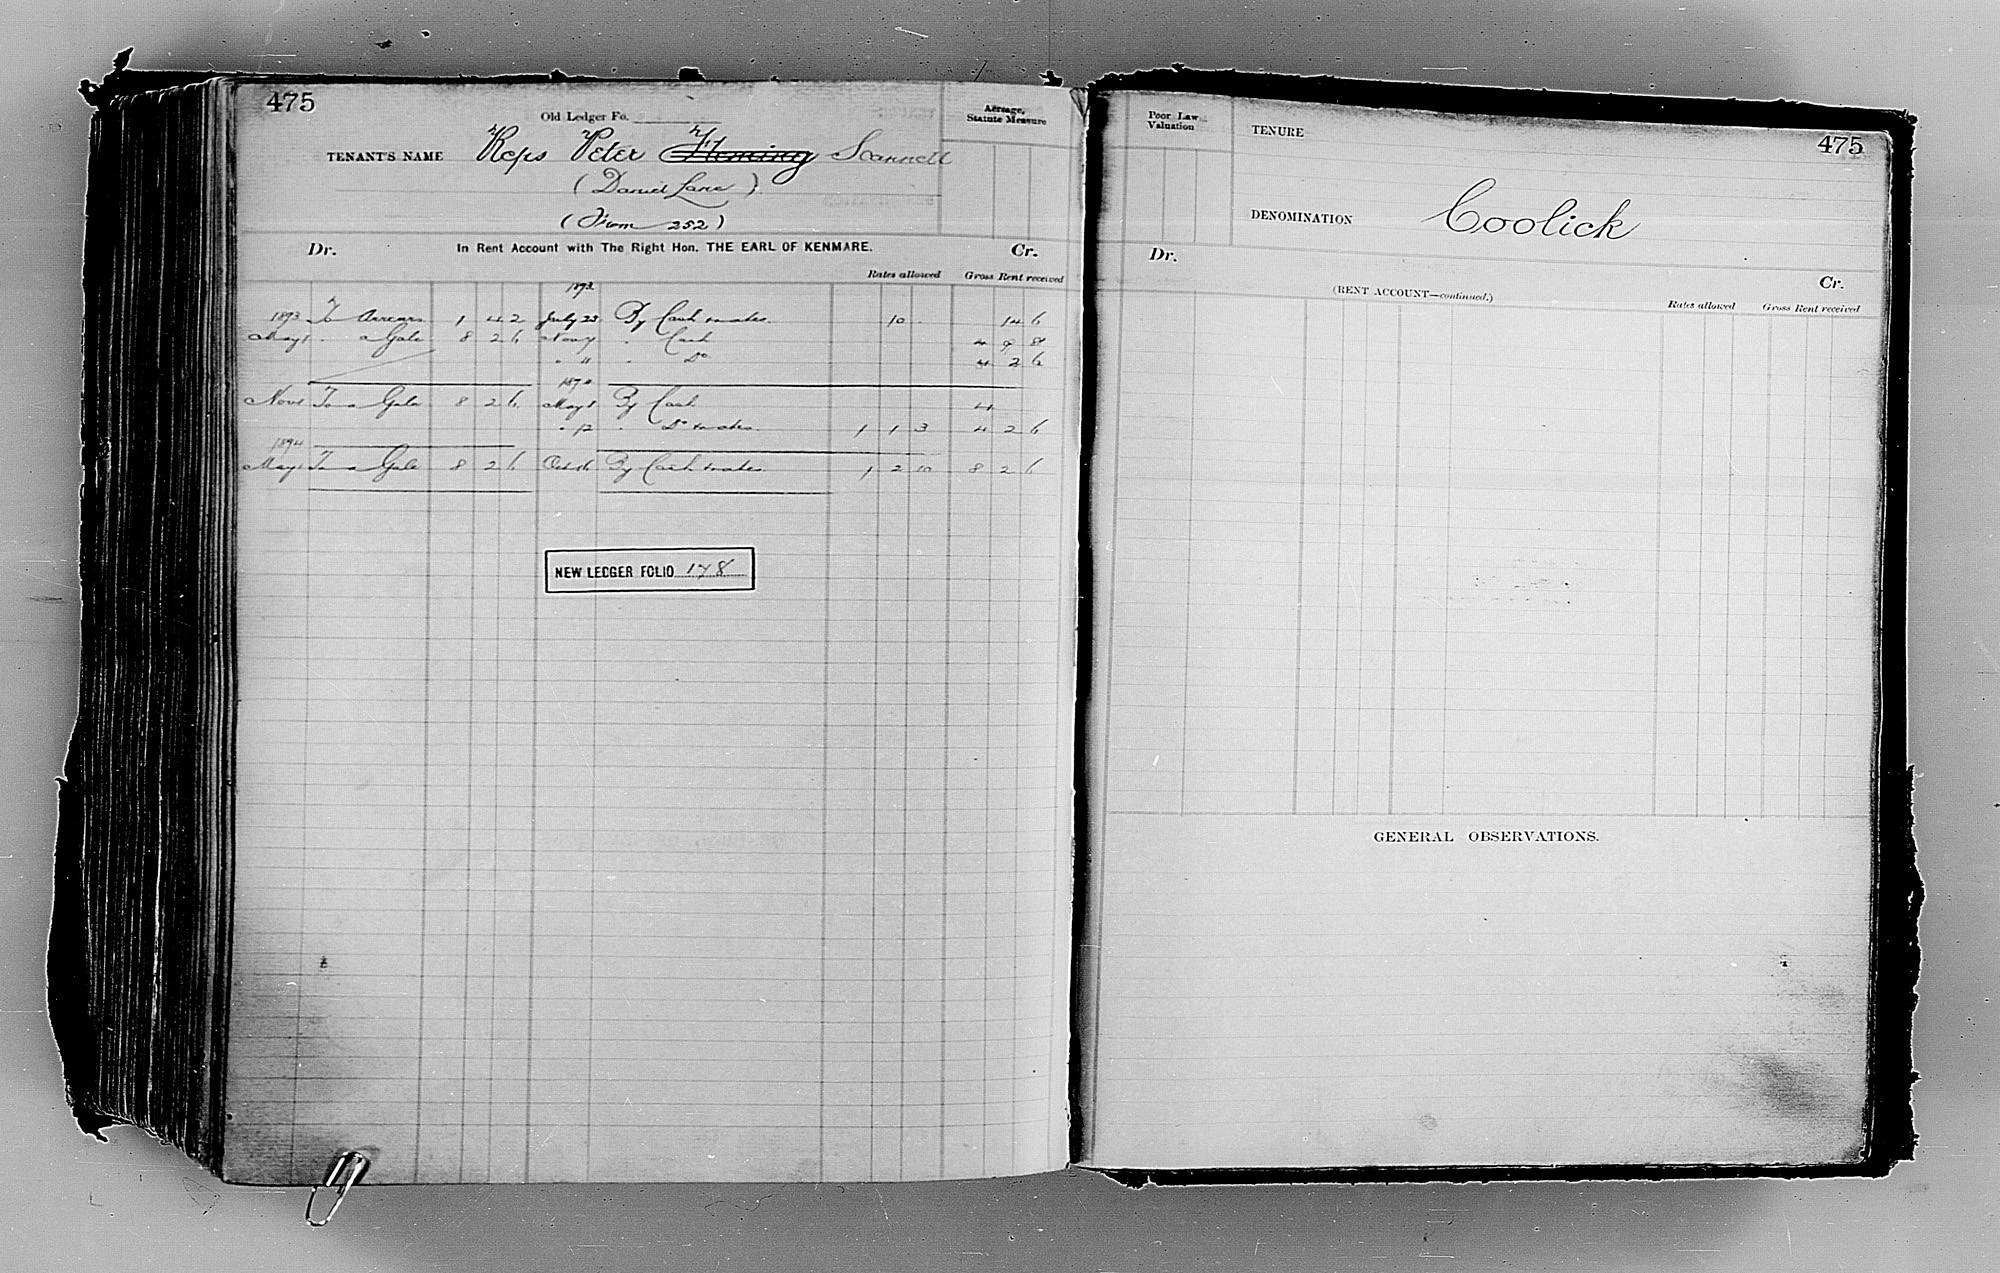 475
Old Ledger Fo.
Acreage, Statute Measure
TENANT'S NAME Reps Peter Fleming Scannell
(Daniel Lane)
(From 252)
Dr. In Rent Account with The Right Hon. THE EARL OF KENMARE. Cr.
Rates allowed Gross Rent received
1893
1893 To Arrears 1 4 2 July 23 By Cash & rates 10 14 6
May 1 " a Gale 8 2 6 Nov 7 " Cash 4 9 8
" 11 " Do 4 2 6
1894
Nov 1 To a Gale 8 2 6 May 1 By Cash 4
" 12 " Do & rates 1 1 3 4 2 6
1894
May 1 To a Gale 8 2 6 Oct 16 By Cash & rates 1 2 10 8 2 6
NEW LEDGER FOLIO 178
Poor Law Valuation
TENURE
475
DENOMINATION Coolick
Dr. Cr.
(RENT ACCOUNT—continued.)
Rates allowed Gross Rent received
GENERAL OBSERVATIONS.